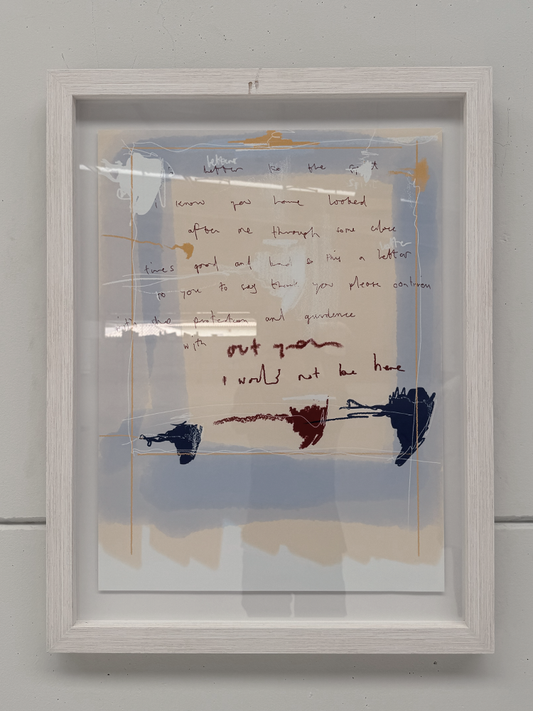 letter to the spirit
know you have looked
after me through some close
times good and bad so this a letter
to you to say thank you please continue
with the protection and guidence
with out you
I would not be here